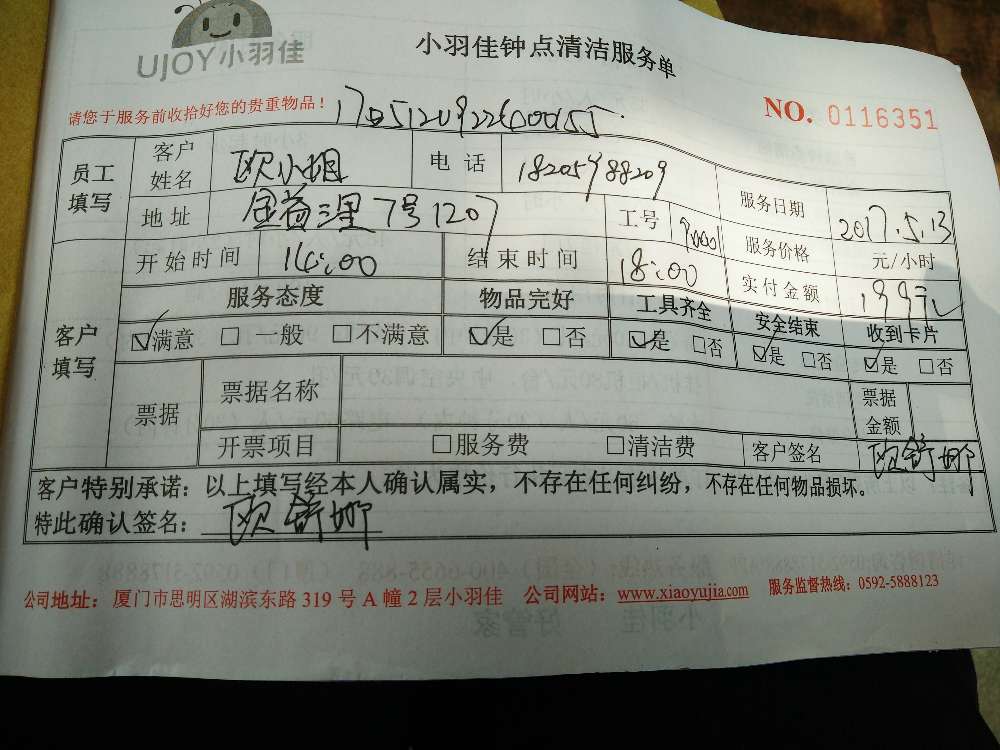 UJOY小羽佳
小羽佳钟点清洁服务单
请您于服务前收拾好您的贵重物品！
NO. 0116351
员工填写 客户姓名 欧小姐 电话 18205988209 服务日期 2017.5.13
地址 金益里7号1207 工号 服务价格 元/小时
开始时间 14:00 结束时间 18:00 实付金额 199元
客户填写 服务态度 物品完好 工具齐全 安全结束 收到卡片
☑满意 □一般 □不满意 ☑是 □否 ☑是 □否 ☑是 □否 ☑是 □否
票据 票据名称 票据金额
开票项目 □服务费 □清洁费 客户签名 欧舒娜
客户特别承诺：以上填写经本人确认属实，不存在任何纠纷，不存在任何物品损坏。
特此确认签名：欧舒娜
公司地址：厦门市思明区湖滨东路 319 号 A 幢 2 层小羽佳 公司网站：www.xiaoyujia.com 服务监督热线：0592-5888123